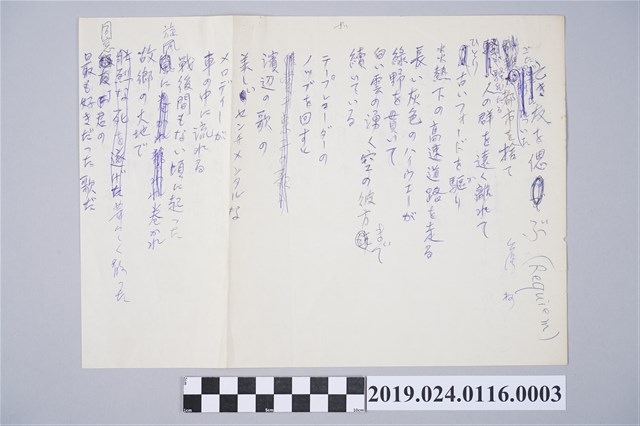 亡き友を偲ぶ (Requiem)
都市を捨て
ひとり
人の群を遠く離れて
古いフォードを駆り
炎熱下の高速道路を走る
長い灰色のハイウェーが
緑野を貫いて
白い雲の湧く空の彼方まで
続いている
テープレコーダーの
ノップを回すと
濱辺の歌の
美しいセンチメンタルな
メロディーが
車の中に流れる
戦後間もない頃に起った
旋風に巻かれ
故郷の大地で
散った
君の
最も好きだった歌だ
2019.024.0116.0003